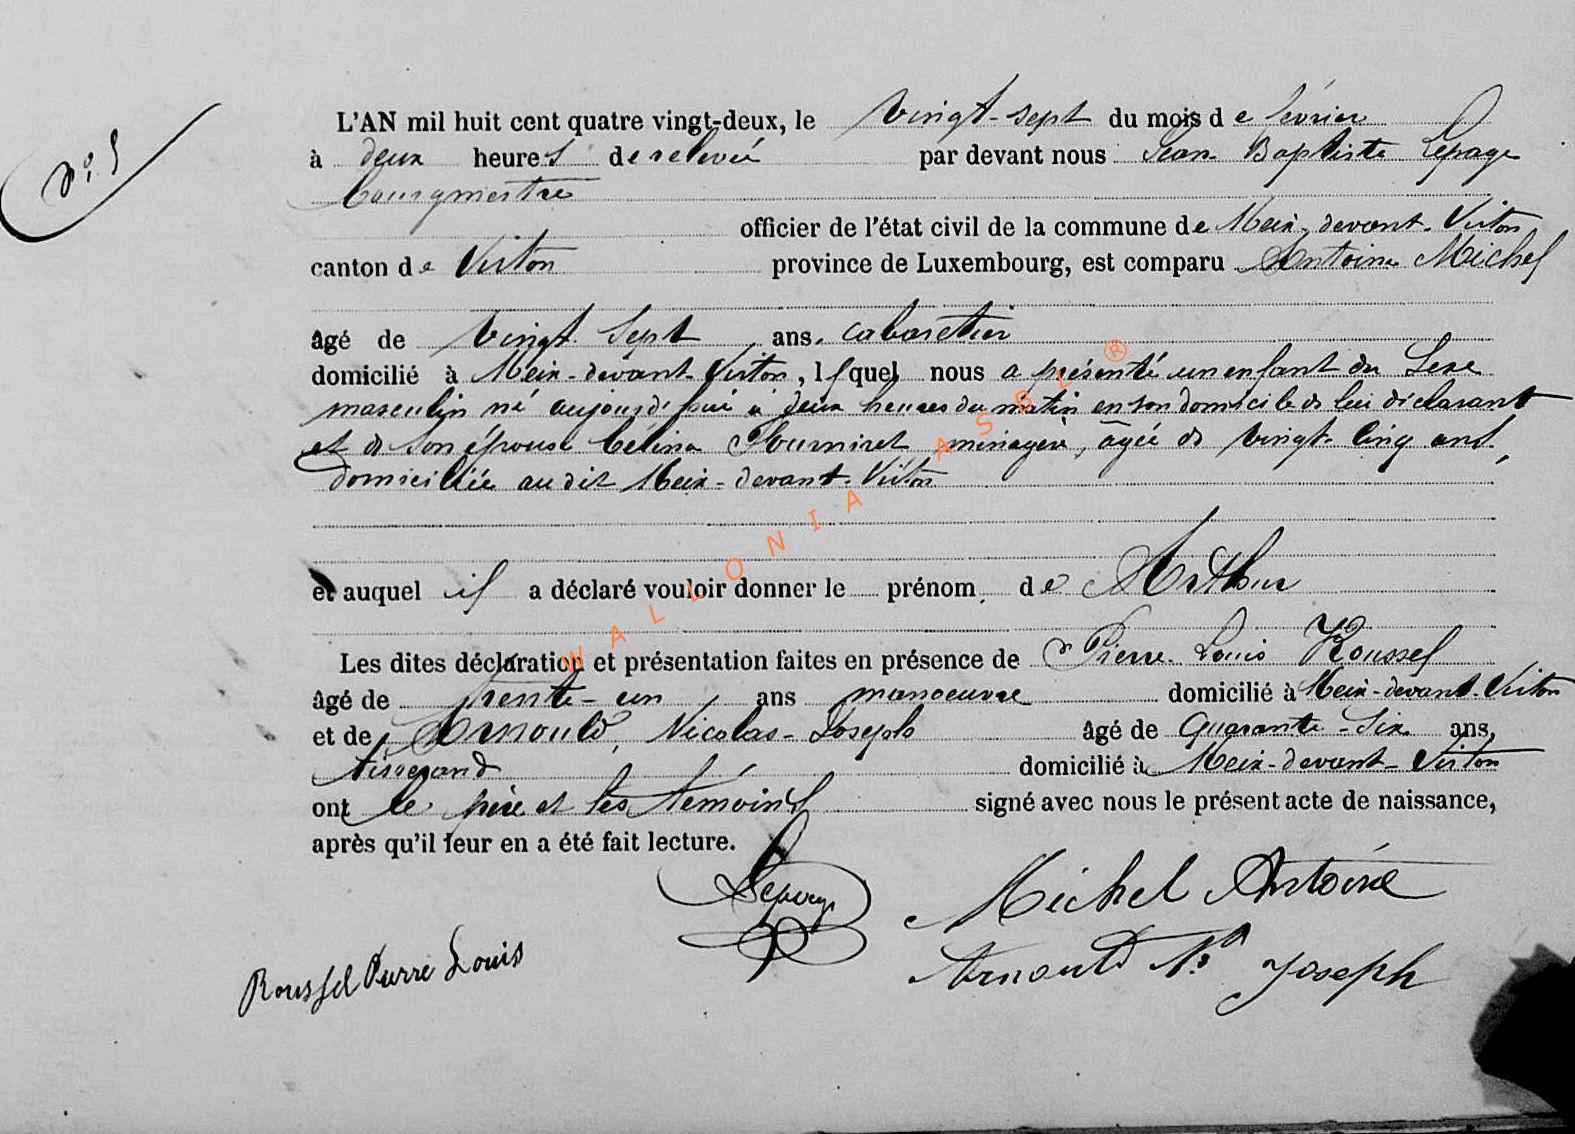 N°. 5
L'AN mil huit cent quatre vingt-deux, le vingt-sept du mois de février
à deux heures de relevée par devant nous Jean Baptiste Lepage
bourgmestre
officier de l'état civil de la commune de Meix-devant-Virton
canton de Virton province de Luxembourg, est comparu Antoine Michel
âgé de vingt sept ans, cabaretier
domicilié à Meix-devant-Virton, lequel nous a présenté un enfant du Sexe
masculin né aujourd'hui à deux heures du matin en son domicile de lui déclarant
et de son épouse Célina Fourniret ménagère, âgée de vingt-cinq ans,
domiciliée au dit Meix-devant-Virton
et auquel il a déclaré vouloir donner le prénom de Arthur
Les dites déclaration et présentation faites en présence de Pierre Louis Roussel
âgé de trente-un ans manoeuvre domicilié à Meix-devant-Virton
et de Arnould, Nicolas-Joseph âgé de quarante-six ans,
tisserand domicilié à Meix-devant-Virton
ont le père et les témoins signé avec nous le présent acte de naissance,
après qu'il leur en a été fait lecture.
Lepage
Michel Antoine
Roussel Pierre Louis
Arnould Nas Joseph
WALLONIA ASBL ®